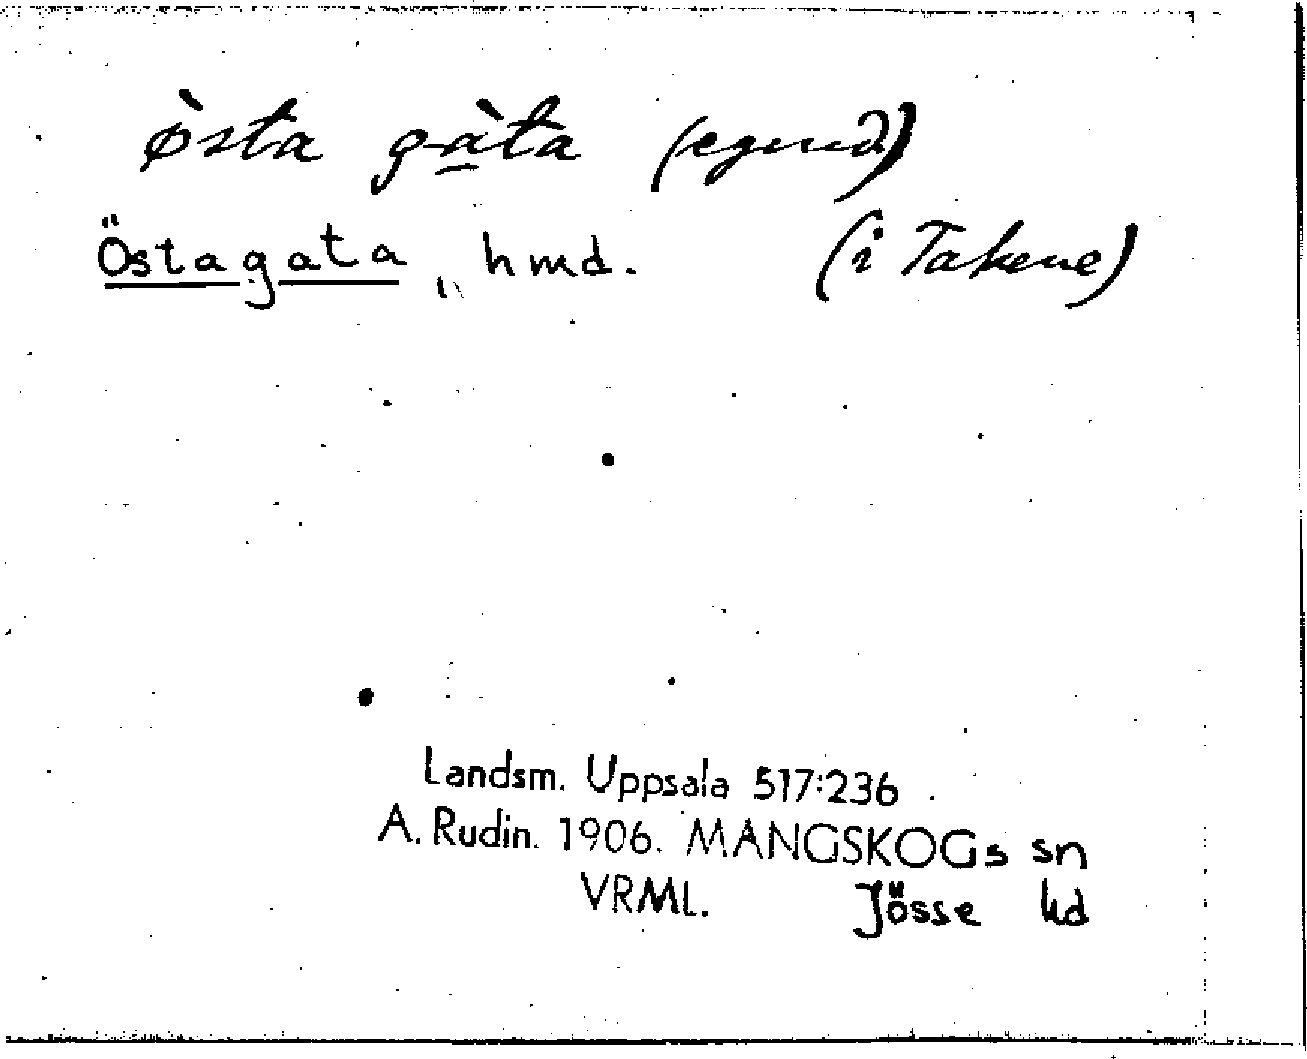 ø̀sta gà̱ta (egend)
"Östagata„ hmd. (i Takene)
Landsm. Uppsala 517:236
A. Rudin. 1906. MANGSKOGs sn
VRML. Jösse hd